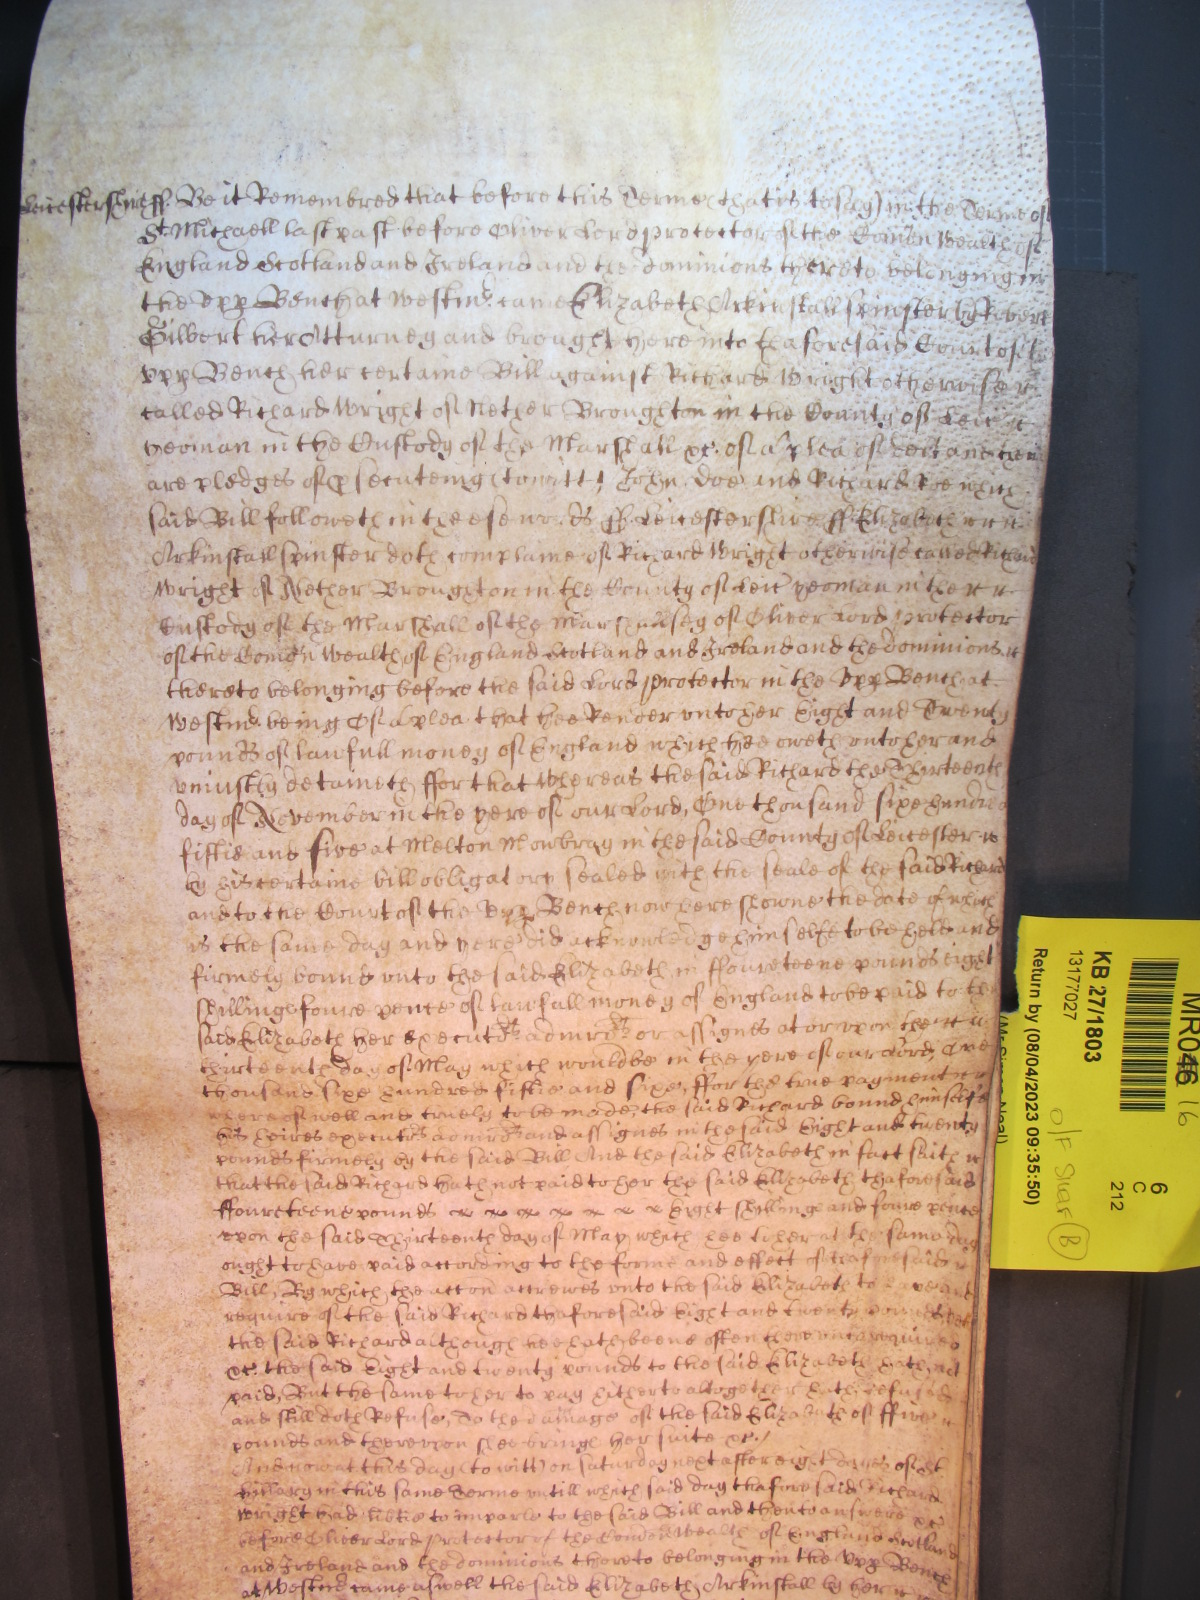 Leicestershire ss. Be it Remembred that before this Terme (that is to say) in the Terme of
St Michaell last past before Oliver Lord protector of the Comon Wealth of
England Scotland and Ireland and the dominions thereto belonging in
the Upp Bench at Westmr. came Elizabeth Arkinstall spinster by Robert
Gilbert her Atturney and brought here into thaforesaid Court of the
Upp Bench her certaine Bill against Richard Wright otherwise
called Richard Wright of Nether Broughton in the County of Leic
yeoman in the Custody of the Marshall &c. of a plea of debt and there
are pledges of psecuteing (to witt) John Doe and Richard Roe which
said Bill followeth in these words ss. Leicestershire ss Elizabeth
Arkinstall spinster doth complaine of Richard Wright otherwise called Richard
Wright of Nether Broughton in the County of Leic yeoman in the
Custody of the Marshall of the Marshalsey of Oliver Lord protector
of the Comon Wealth of England Scotland and Ireland and the dominions
thereto belonging before the said Lord protector in the Upp Bench at
Westmr. being Of a plea that hee Render unto her Eight and Twenty
pounds of lawfull money of England which hee oweth unto her and
uniustly detaineth ffor that Whereas the said Richard the Thirteenth
day of November in the yere of our Lord, One thousand sixe hundred
fiftie and five at Melton Mowbray in the said County of Leicester
by his certaine bill obligatory sealed with the seale of the said Richard
and to the Court of the Upp Bench now here showne the date of which
is the same day and yere did acknowledge himselfe to be held and
firmely bound unto the said Elizabeth in ffoureteene pounds eight
shillings foure pence of lawfull money of England to be paid to the
said Elizabeth her executrs admrs or assignes at or upon the
thirteenth day of May which would be in the yere of our Lord, One
thousand sixe hundred fiftie and sixe, ffor the true payment
whereof well and truely to be made, the said Richard bound himselfe
his heires executrs admrs and assignes in the said Eight and twenty
pounds firmely by the said Bill And the said Elizabeth in fact saith
that the said Richard hath not paid to her the said Elizabeth thaforesaid
ffoureteene pounds Eight shillings and foure pence
upon the said Thirteenth day of May which hee to her at the same day
ought to have paid according to the forme and effect of thaforesaid
Bill, By which the accon accrewes unto the said Elizabeth to
require of the said Richard thaforesaid Eight and twenty pounds
the said Richard although hee hath beene often thereunto required
&c. the said Eight and twenty pounds to the said Elizabeth hath not
paid, But the same to her to pay hitherto altogether hath refused
and still doth Refuse, To the damage of the said Elizabeth of ffive
pounds and thereupon shee bringe her suite &c./
And now at this day (to witt) on saturday next after eight dayes of st
Hillary in this same Terme untill which said day thaforesaid Richard
Wright had libtie to imparle to the said Bill and then to answere &c
before Oliver Lord Protector of the Comon Wealth of England Scotland
and Ireland and the dominions thereto belonging in the Upp Bench
at Westmr came aswell the said Elizabeth Arkinstall by her
MR046 16
KB 27/1803
13177027
Return by (08/04/2023 09:35:50)
6
C
212
O/F Shelf B